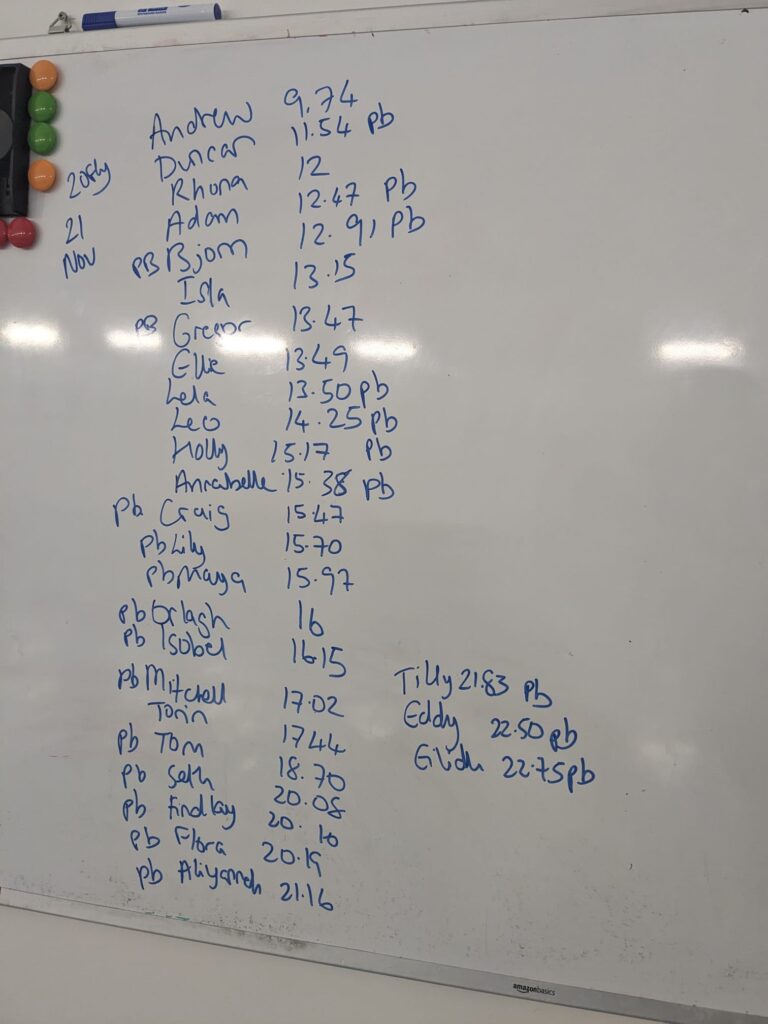 Andrew 9.74
Duncan 11.54 pb
Rhona 12
Adam 12.47 pb
PB Bjorn 12.91 pb
Isla 13.15
PB Gregor 13.47
Ellie 13.49
Lela 13.50 pb
Leo 14.25 pb
Holly 15.17 pb
Annabelle 15.38 pb
pb Craig 15.47
pb Lily 15.70
pb Maya 15.97
pb Orlagh 16
pb Isobel 16.15
pb Mitchell 17.02
Torin 17.44
pb Tom 18.70
pb Seth 20.08
pb Findlay 20.10
pb Flora 20.19
pb Aliyannah 21.16
21
Nov
Tilly 21.83 pb
Eddy 22.50 pb
Eilidh 22.75 pb
amazonbasics